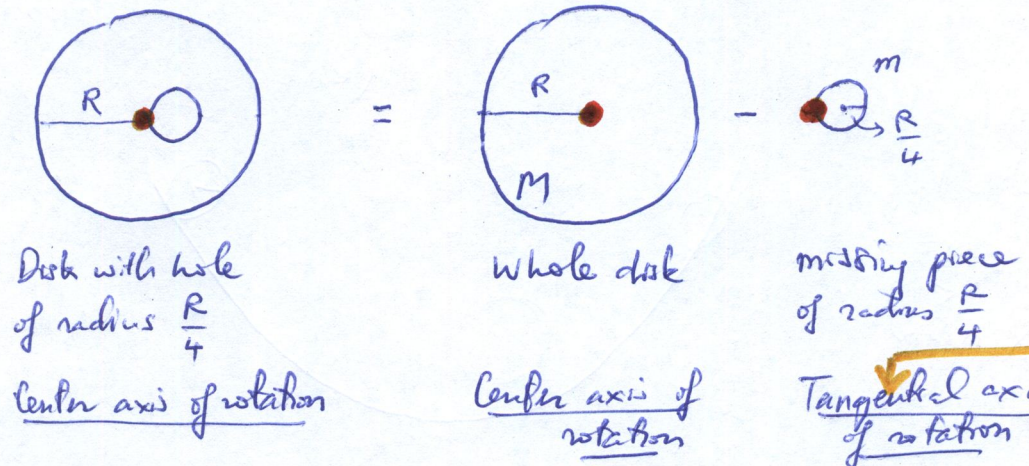 R
=
R
M
-
m
R
4
Disk with hole
of radius R/4
Center axis of rotation
Whole disk
Center axis of
rotation
missing piece
of radius R/4
Tangential axis
of rotation